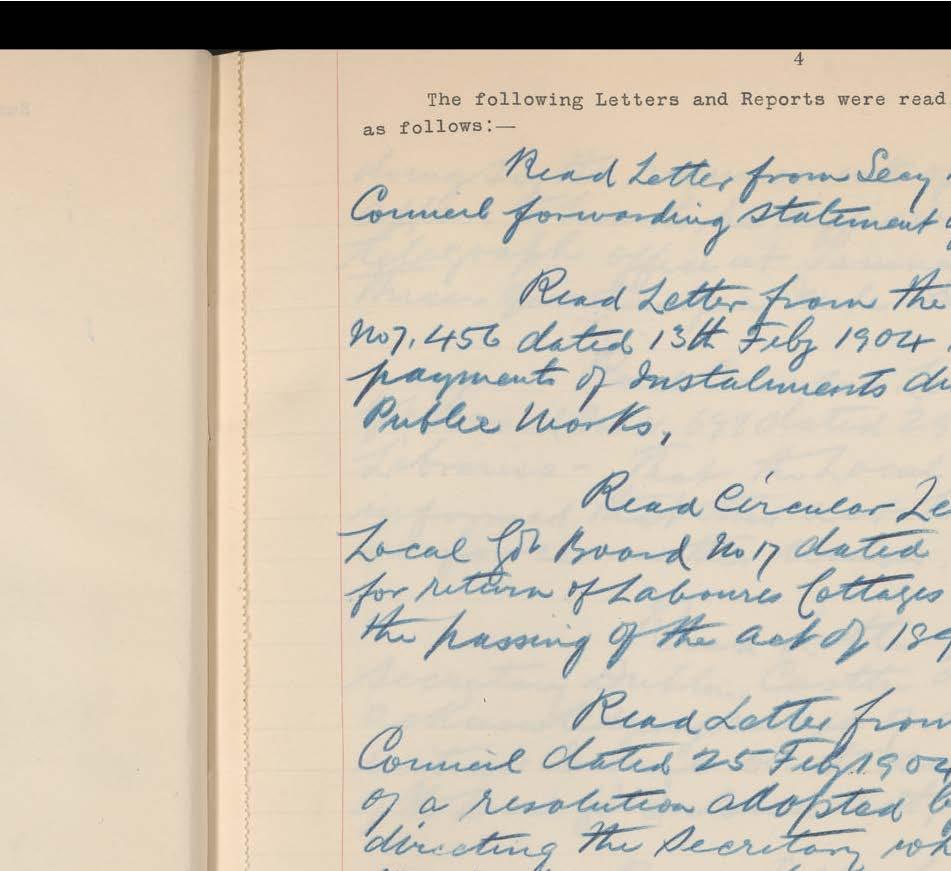 4
The following Letters and Reports were read
as follows:—
Read Letter from Secy
Council forwarding statement
Read Letter from the
No7,456 dated 13th Feby 1904
payments of Instalments
Public Works,
Read Circular
Local Gov Board No 17 dated
for return of Laboures Cottages
the passing of the act of 189
Read Letter from
Council dated 25 Feby 190
of a resolution adopted
directing the Secretary